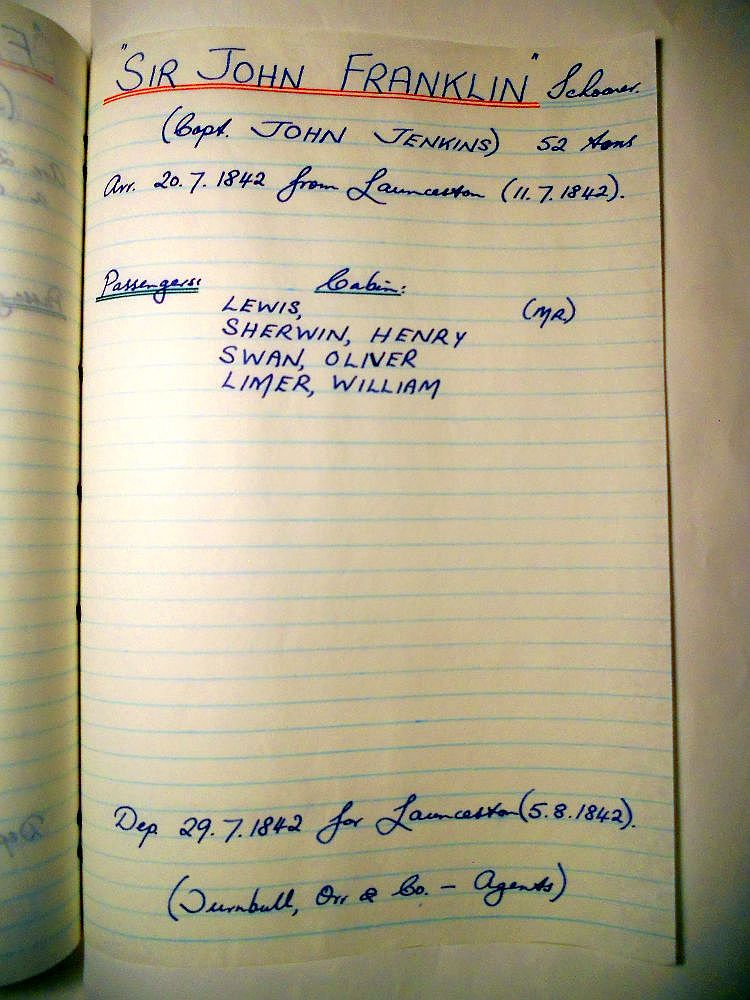 "SIR JOHN FRANKLIN" Schooner.
(Capt. JOHN JENKINS) 52 tons
Arr. 20.7.1842 from Launceston (11.7.1842).
Passengers: Cabin:
LEWIS, (MR.)
SHERWIN, HENRY
SWAN, OLIVER
LIMER, WILLIAM
Dep. 29.7.1842 for Launceston (5.8.1842).
(Turnbull, Orr & Co. – Agents)